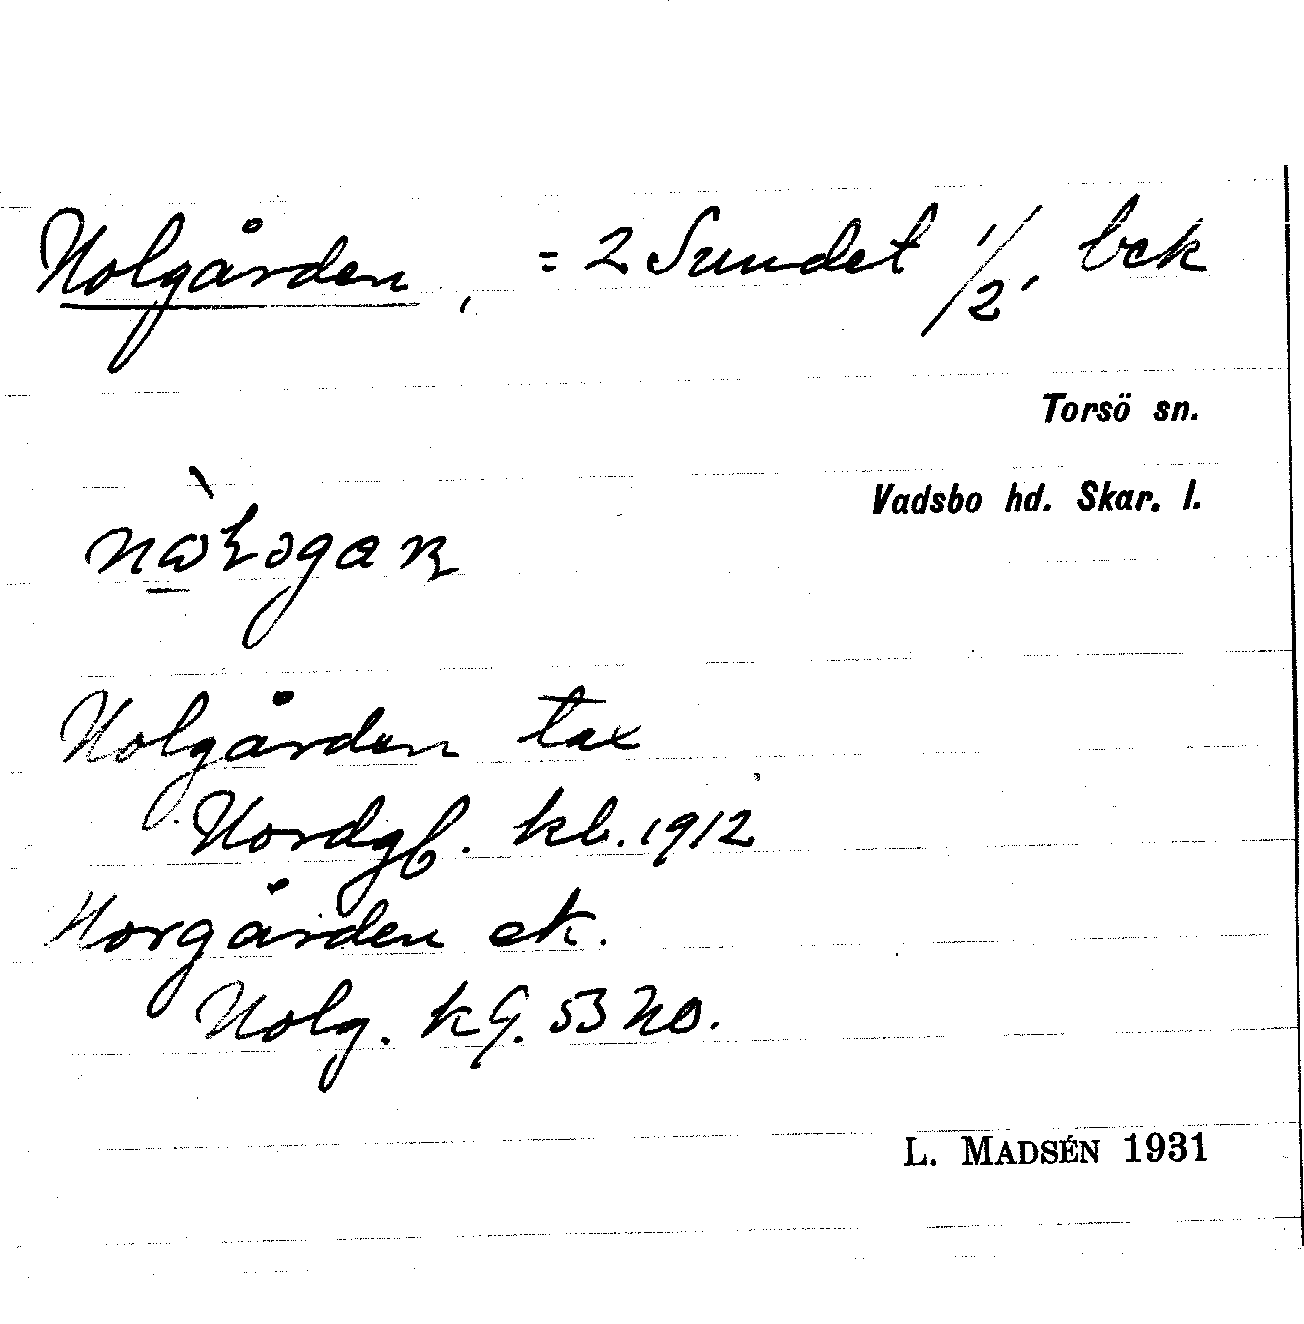 Nolgården, = 2 Sundet 1/2, bek
Torsö sn.
Vadsbo hd. Skar. l.
Nolgården tax
Nordgf. kb. 1912
Norgården ek.
Nolg. kG. 53 NO.
L. MADSÉN 1931